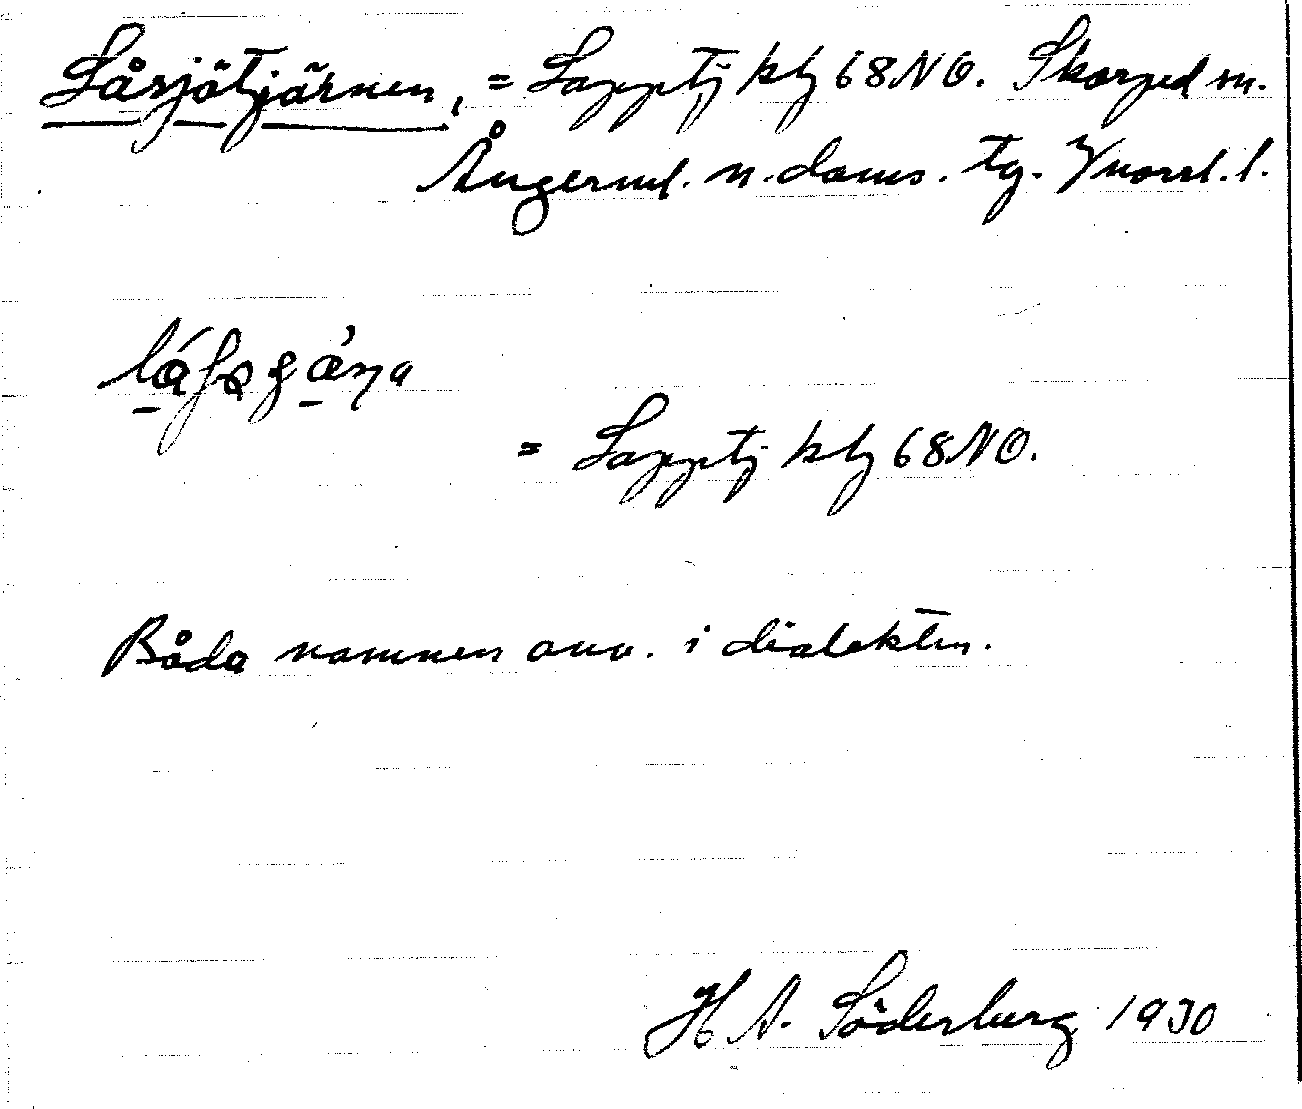 Låsjötjärnen, = Lapptj ktj 68NO. Skorped sn.
Ångerml. n. doms. tg. Vnorrl. l.
= Lapptj ktj 68NO.
Båda namnen anv. i dialekten.
H A. Söderberg 1930